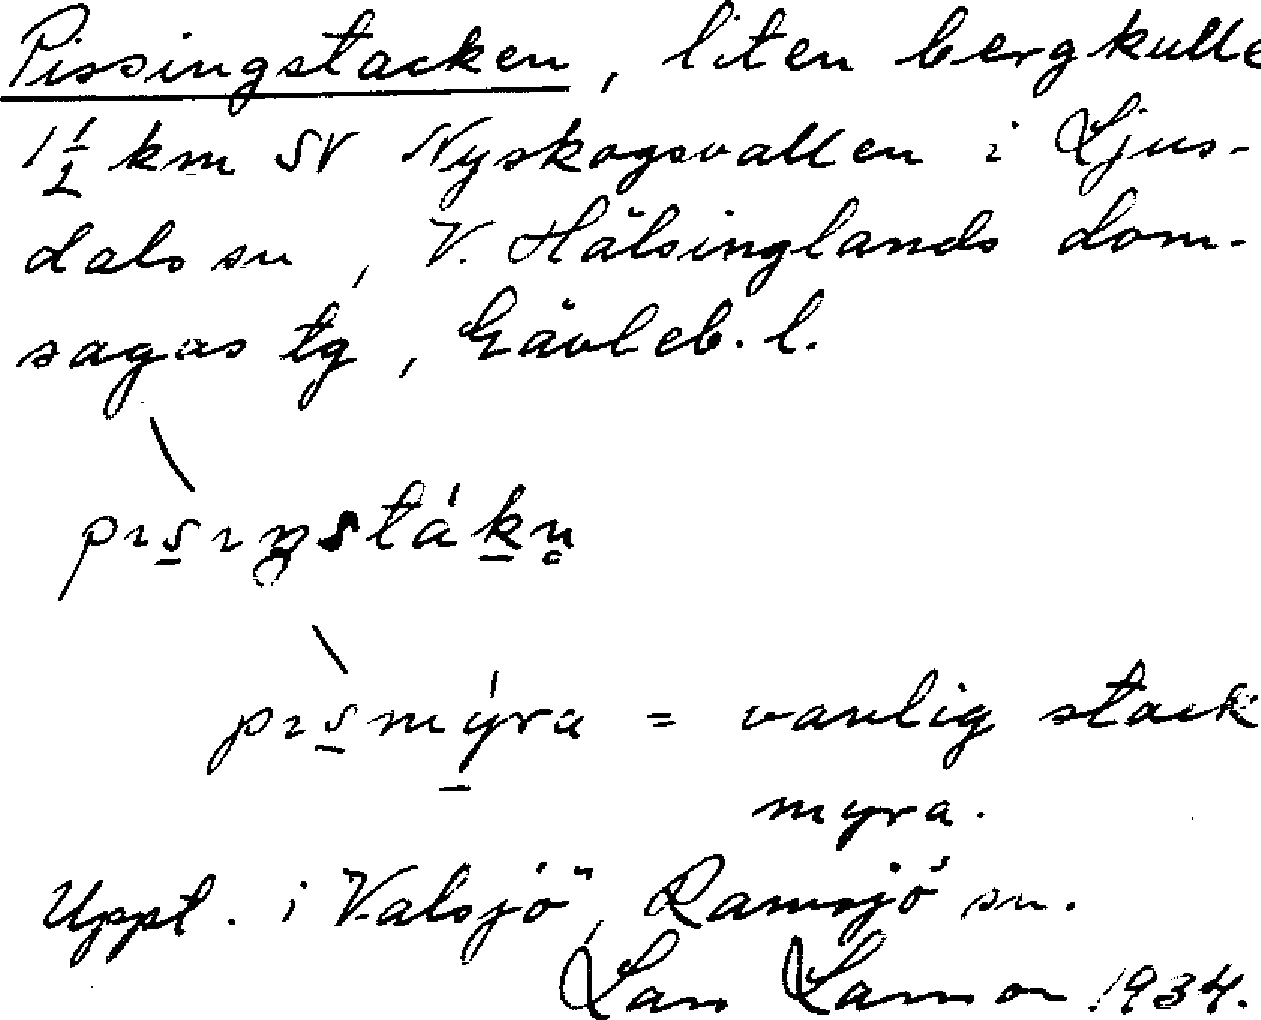 Pissingstacken, liten bergkulle
1 1/2 km SV Nyskogsvallen i Ljus-
dals sn, V. Hälsinglands dom-
sagas tg, Gävleb. l.
pısıŋstákn̥
pısmýra = vanlig stack
myra.
Uppt. i Valsjö, Ramsjö sn.
Lars Larsson 1934.